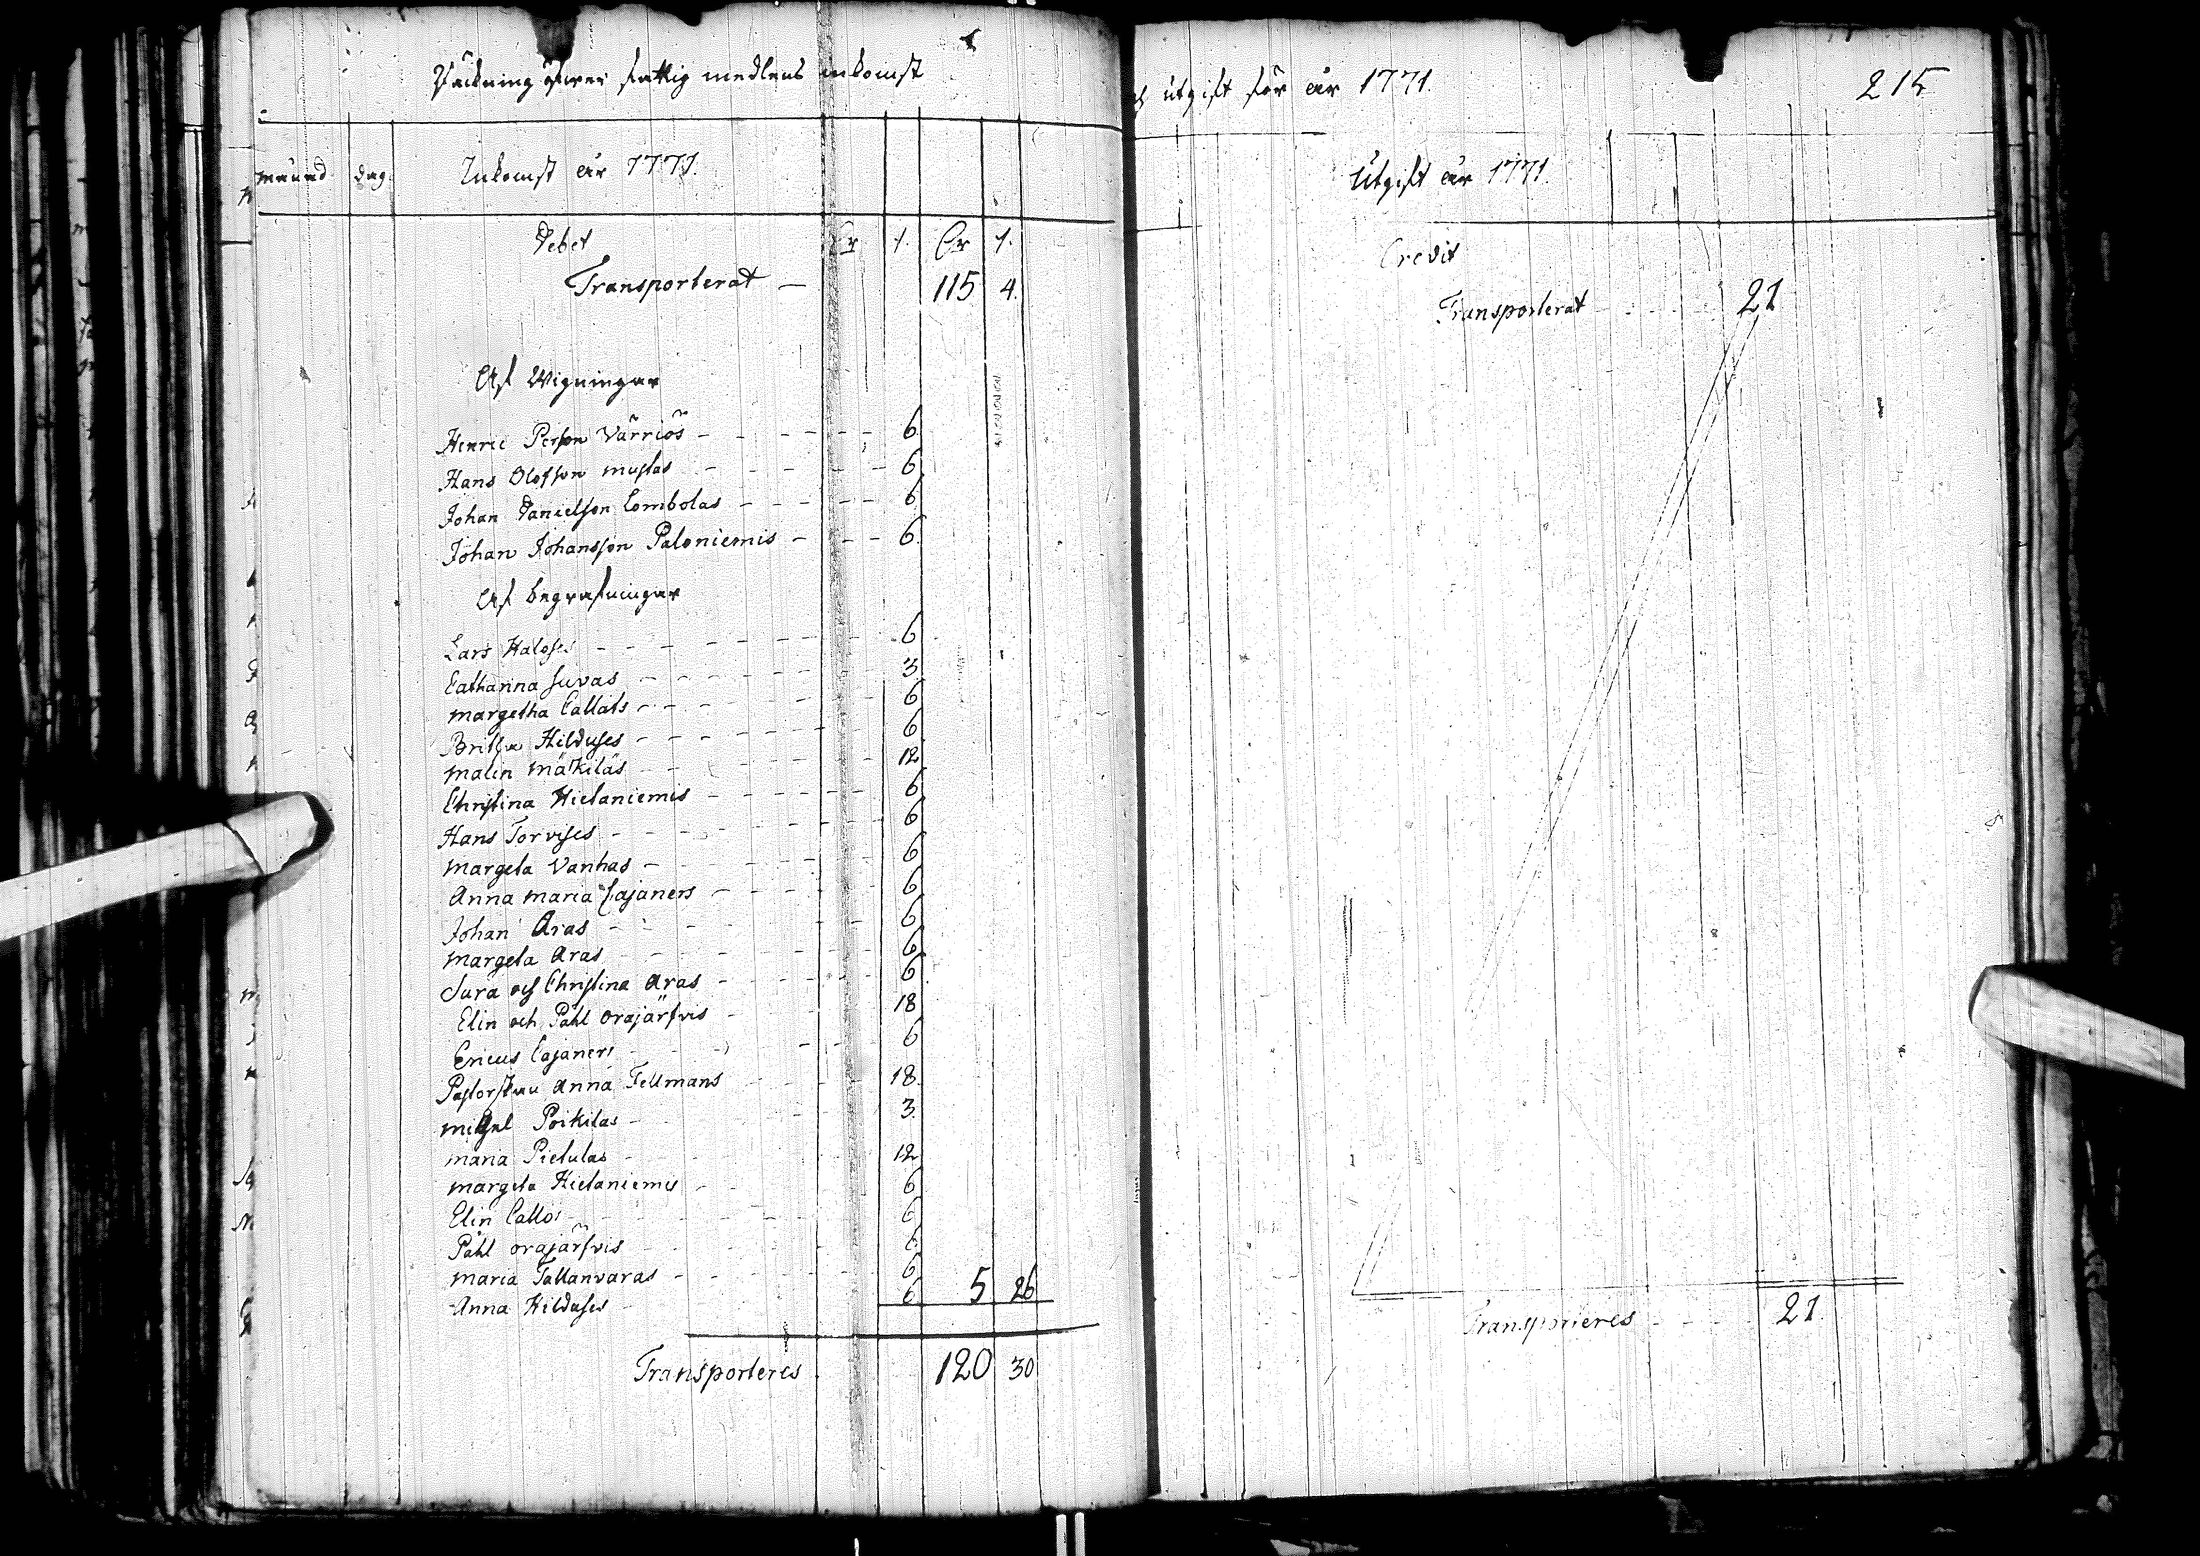 Räckning öfwer fattig medlens inkomst
månad dag Inkomst år 1771.
Debet Dr s. Dr s.
Transporterat — 115 4.
Af Wigningar
Henric Person Värriös - - - 6
Hans Olofsson mustas - - - 6
Johan Danielsson Lombolas - - - 6
Johan Johansson Paloniemis - - - 6
Af begrafningar
Lars Haloses - - - 6
Catharina Juvas - - - 3
margetha Callats - - - 6
Britha Hilduses - - - 6
malin mäkiläs - - - 12
Christina Hietaniemis - - - 6
Hans Torvises - - - 6
margeta Vanhas - - - 6
Anna maria Cajaners - - - 6
Johan Aras - - - 6
margeta Aras - - - 6
Sara och Christina Aras - - - 6
Elin och Påhl orajärfvis - 18
Ericus Cajaners - - - 6
Pastorskan Anna Fellmans - - - 18
michel Poikilas - - - 3
maria Pietulas - - - 12
margeta Hietaniemis - - - 6
Elin Callos - - - 6
Påhl orajärfvis - - - 6
maria Tallanvaras - - - 6
Anna Hilduses - 6 5 26
Transporteres 120 30
och utgift för år 1771. 215
Utgift år 1771.
Credit
Transporterat - - - 21
Transporteres - - - 21.